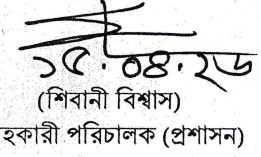 ১৫.০৪.২৬
(শিবানী বিশ্বাস)
হকারী পরিচালক (প্রশাসন)